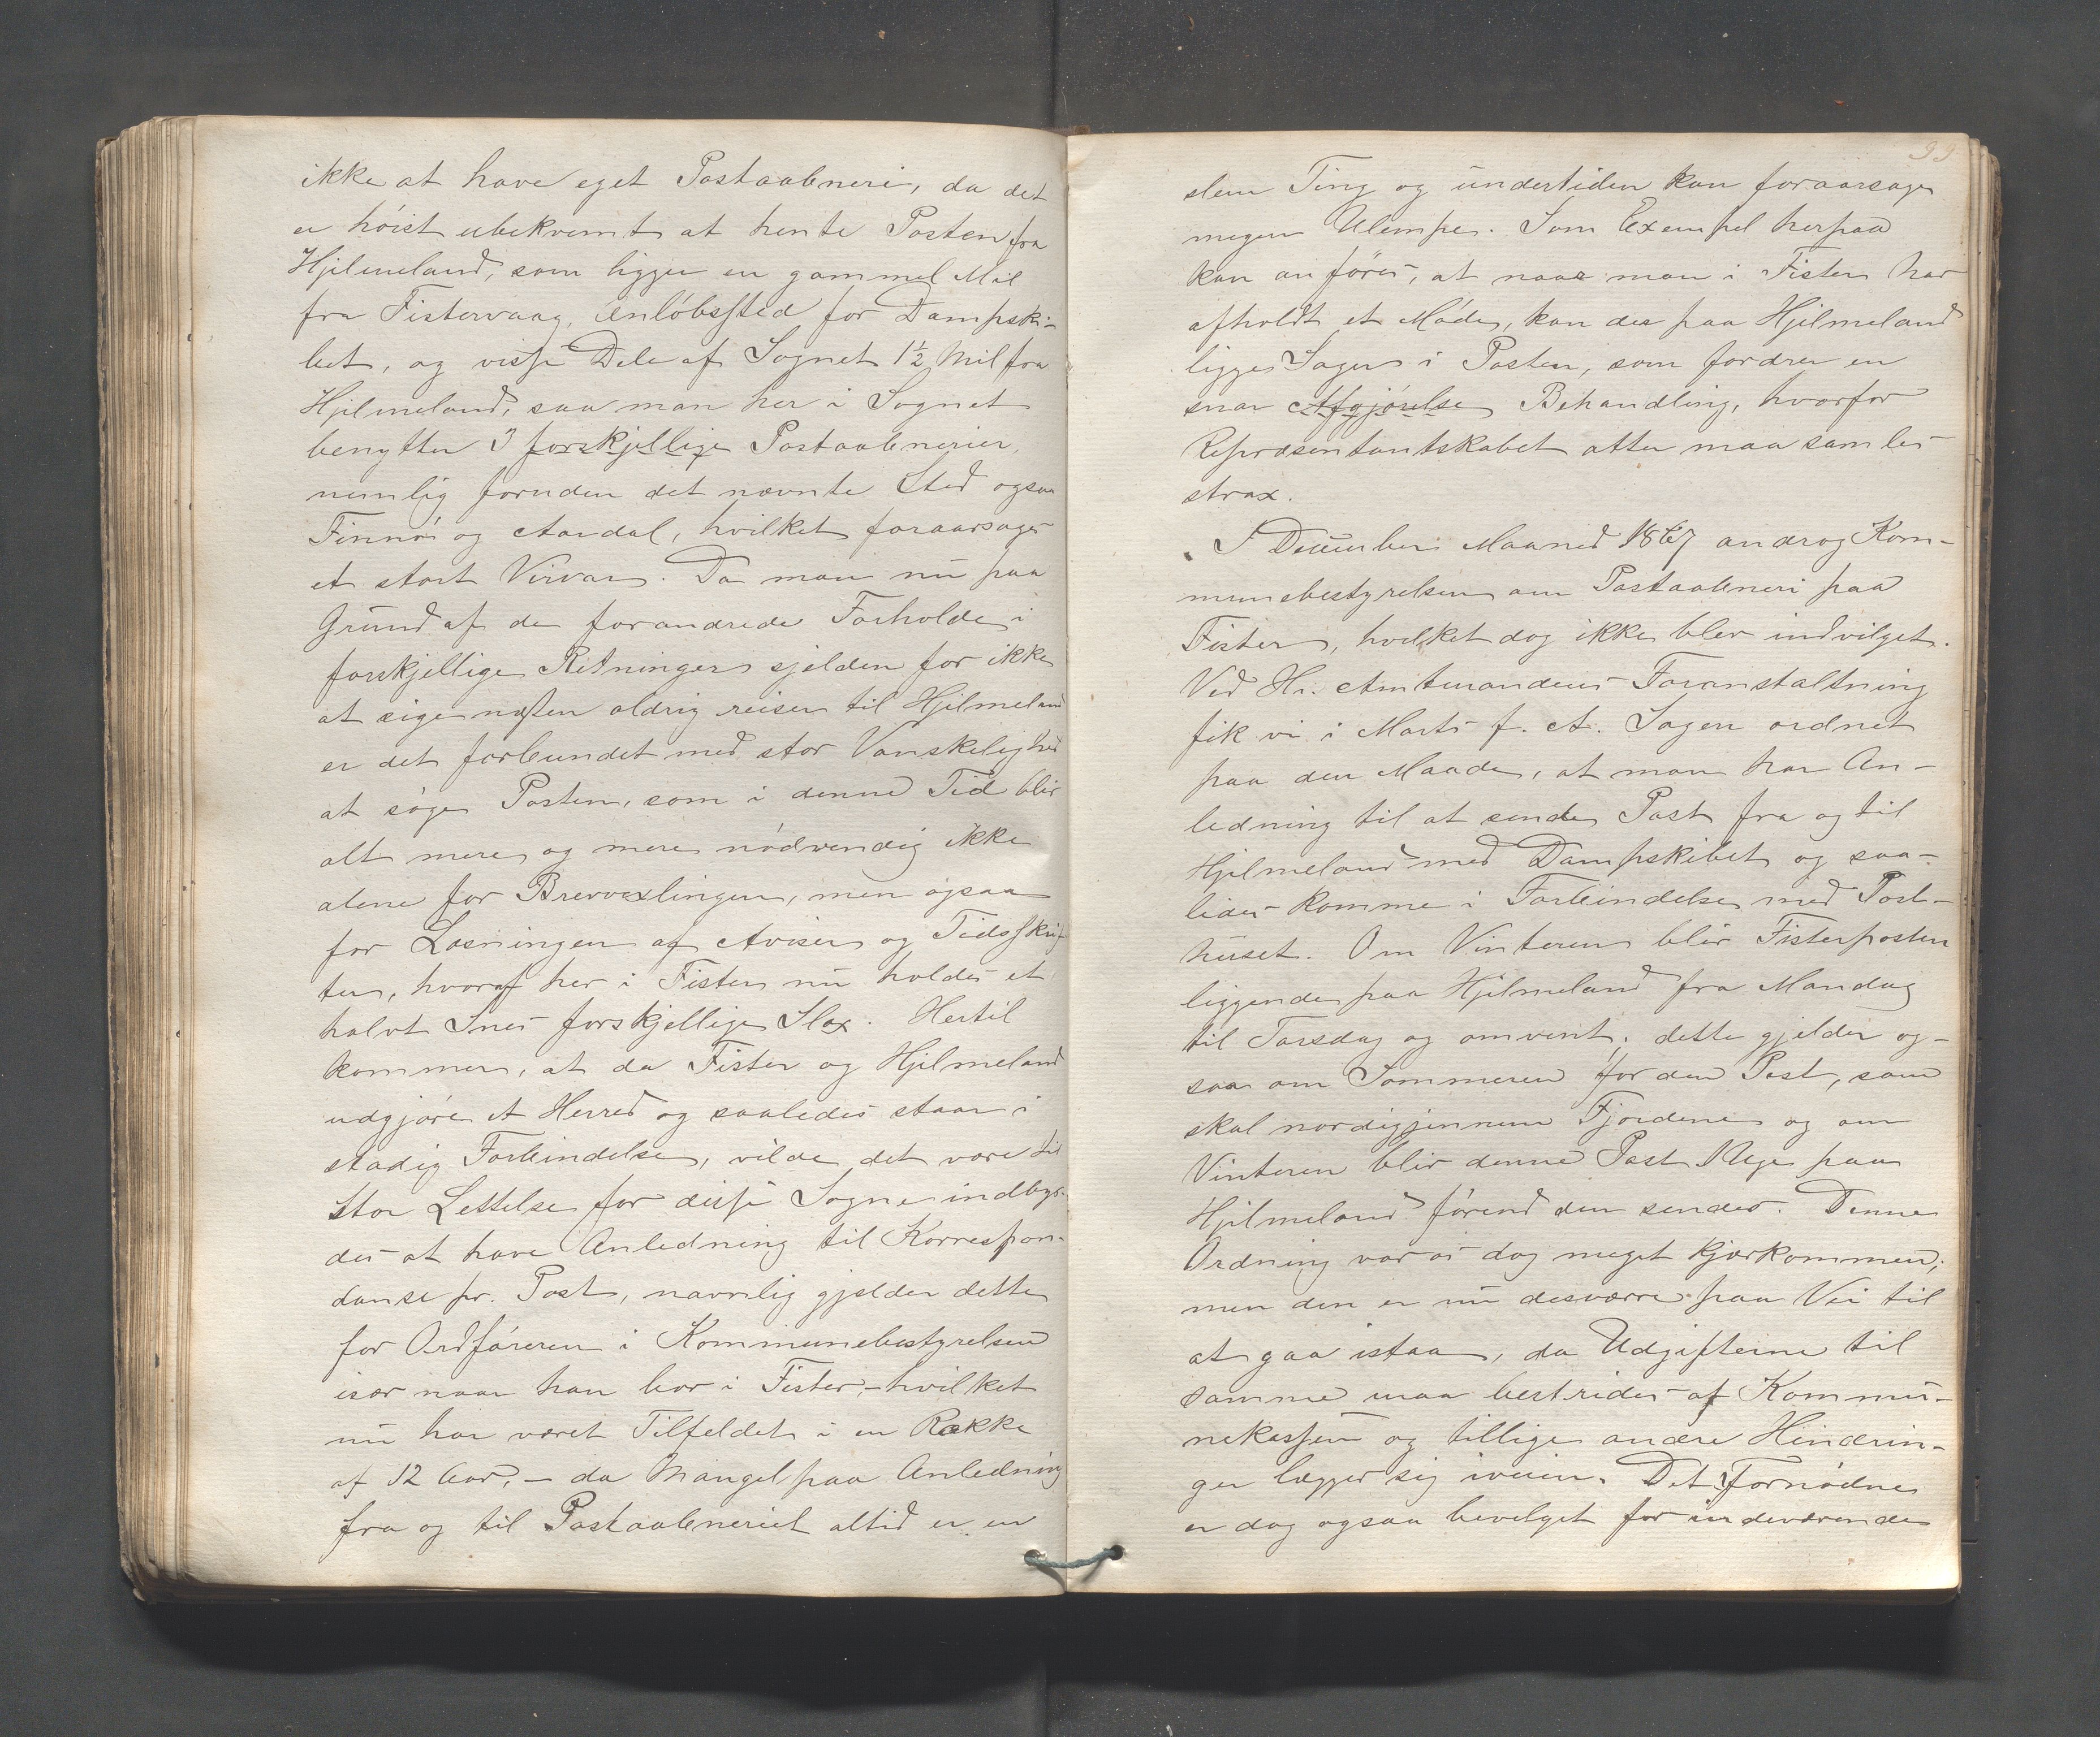 ikke at have eget Postaabneri, da det
er höist ubekvemt at hente Posten fra
Hjelmeland, som ligger en gammel Mil
fra Fistervaag, Anlöbssted for Dampski-
bet, og visse Dele af Sognet 1½ Mil fra
Hjelmeland, saa man her i Sognet
benytter 3 forskjellige Postaabnerier,
nemlig foruden det nævnte Sted ogsaa
Finnö og Aardal, hvilket foraarsager
et stort Virvar. Da man nu paa
Grund af de forandrede Forholde i
forskjellige Retninger sjelden for ikke
at sige næsten aldrig reiser til Hjelmeland
er det forbundet med stor Vanskelighed
at söge Posten, som i denne Tid blir
alt mere og mere nödvendig ikke
alene for Brevvexlingen, men ogsaa
for Læsningen af Aviser og Tidsskrif-
ter, hvoraf her i Fister nu holdes et
halvt Snes forskjellige Slax. Hertil
kommer, at da Fister og Hjelmeland
udgjöre et Herred og saaledes staar i
stadig Forbindelse, vilde det være til
stor Lettelse for disse Sogne indbyr-
des at have Anledning til Korrespon-
danse pr. Post, navnlig gjelder dette
for Ordföreren i Kommunebestyrelsen
især naar han bor i Fister, - hvilket
nu har været Tilfeldet i en Række
af 12 Aar, - da Mangel paa Anledning
fra og til Postaabneriet altid er en
99
slem Ting og undertiden kan foraarsage
megen Ulempe. Som Exempel herpaa
kan anföres, at naar man i Fister har
afholdt et Möde, kan der paa Hjelmeland
ligge Sager i Posten, som fordrer en
snar Afgjörelse Behandling, hvorfor
Repræsentantskabet atter maa samles
strax.
I December Maaned 1867 androg Kom-
munebestyrelsen om Postaabneri paa
Fister, hvilket dog ikke blev indvilget.
Ved Hr. Amtmandens Foranstaltning
fik vi i Marts f. A. Sagen ordnet
paa den Maade, at man har An-
ledning til at sende Post fra og til
Hjelmeland med Dampskibet og saa-
ledes komme i Forbindelse med Post-
huset. Om Vinteren blir Fisterposten
liggende paa Hjelmeland fra Mandag
til Torsdag og omvent; dette gjelder og-
saa om Sommeren for den Post, som
skal nordigjennem Fjordene og om
Vinteren blir denne Post Uge paa
Hjelmeland förend den sendes. Denne
Ordning var os dog meget kjærkommen,
men den er nu desværre paa Vei til
at gaa istaa, da Udgifterne til
samme maa bestrides af Kommu-
nekassen og tillige andre Hindrin-
ger lægger sig iveien. Det Fornödne
er dog ogsaa bevelget for indeværende